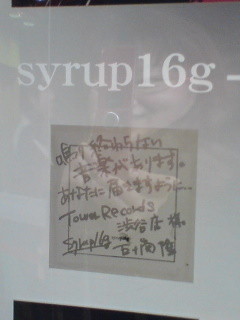 syrup16g -
鳴り終わらない
音楽があります。
あなたに届きますように…
Tower Records
渋谷店 様
syrup16g 五十嵐 隆